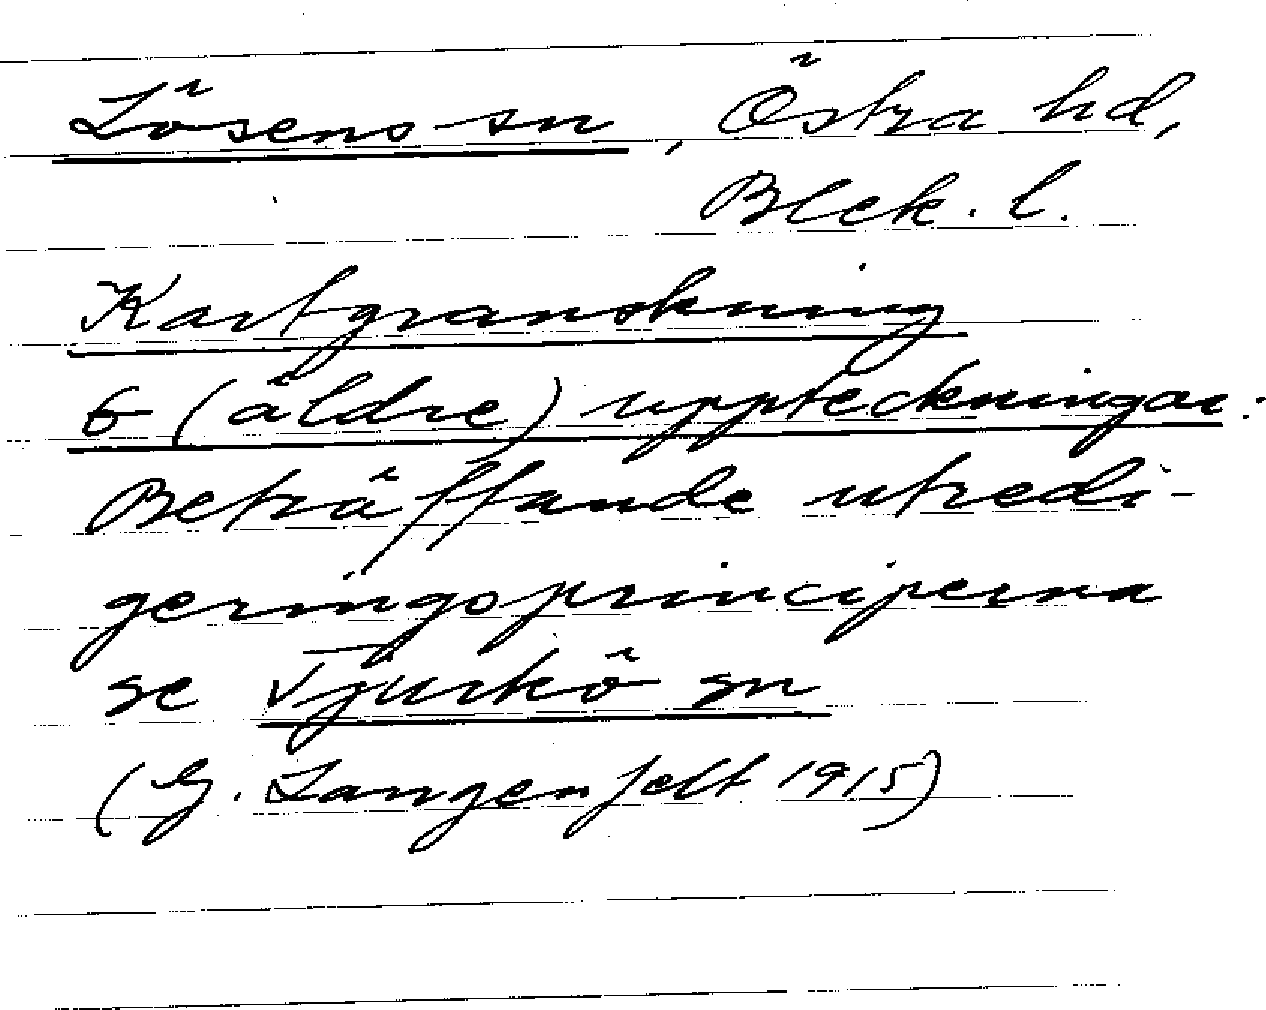 Lösens sn, Östra hd,
Blek. l.
Kartgranskning
6 (äldre) uppteckningar.
Beträffande utredi-
geringsprinciperna
se Tjurkö sn
(G. Langenfelt 1915)